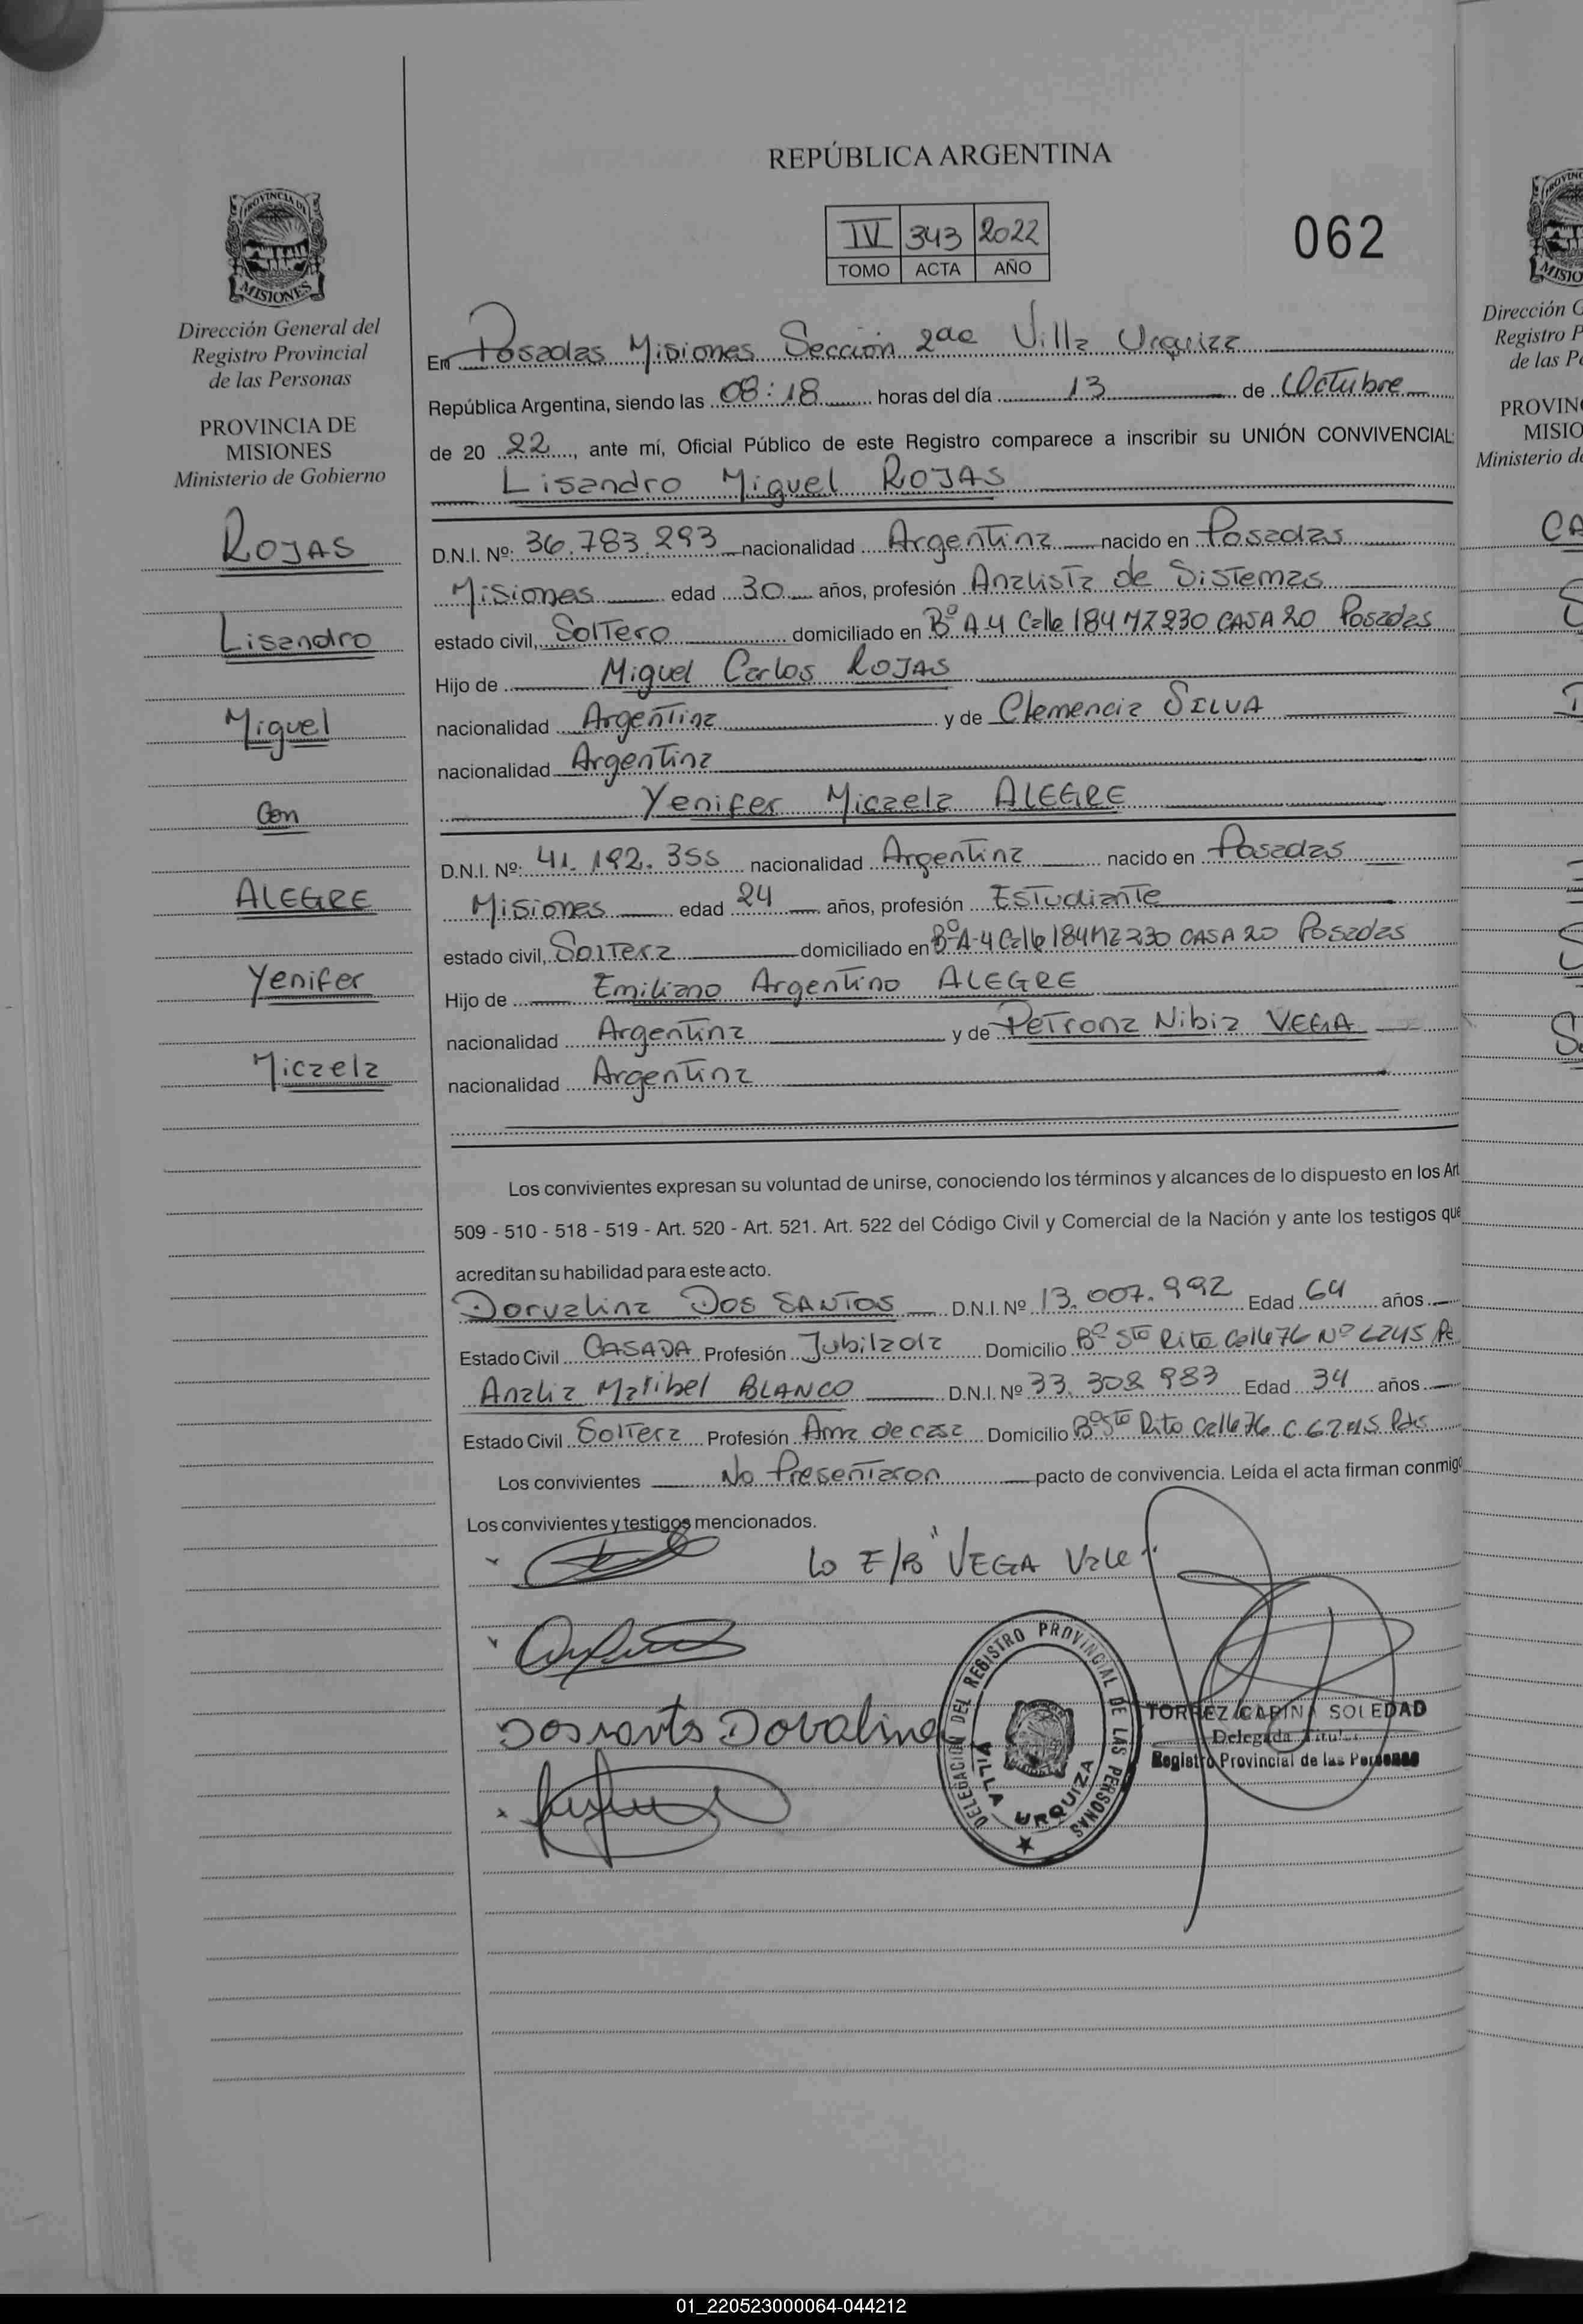 REPÚBLICA ARGENTINA
IV 343 2022
TOMO ACTA AÑO
062
MISIONES
Dirección General del
Registro Provincial
de las Personas
PROVINCIA DE
MISIONES
Ministerio de Gobierno
ROJAS
Lisandro
Miguel
Con
ALEGRE
Yenifer
Micaela
En Posadas Misiones Sección 2da Villa Urquiza
República Argentina, siendo las 08:18 horas del día 13 de Octubre
de 20 22, ante mí, Oficial Público de este Registro comparece a inscribir su UNIÓN CONVIVENCIAL:
Lisandro Miguel ROJAS
D.N.I. Nº: 36.783.293 nacionalidad Argentina nacido en Posadas
Misiones edad 30 años, profesión Analista de Sistemas
estado civil, Soltero domiciliado en Bº A-4 Calle 184 MZ 230 CASA 20 Posadas
Hijo de Miguel Carlos ROJAS
nacionalidad Argentina y de Clemencia SILVA
nacionalidad Argentina
Yenifer Micaela ALEGRE
D.N.I. Nº: 41.192.355 nacionalidad Argentina nacido en Posadas
Misiones edad 24 años, profesión Estudiante
estado civil, Soltera domiciliado en Bº A-4 Calle 184 MZ 230 CASA 20 Posadas
Hijo de Emiliano Argentino ALEGRE
nacionalidad Argentina y de Petrona Nibia VEGA
nacionalidad Argentina
Los convivientes expresan su voluntad de unirse, conociendo los términos y alcances de lo dispuesto en los Art
509 - 510 - 518 - 519 - Art. 520 - Art. 521. Art. 522 del Código Civil y Comercial de la Nación y ante los testigos que
acreditan su habilidad para este acto.
Dorvalina DOS SANTOS D.N.I. Nº 13.007.992 Edad 64 años
Estado Civil CASADA Profesión Jubilada Domicilio Bº Sto Rita Calle 76 Nº 6245
Analia Maribel BLANCO D.N.I. Nº 33.308 983 Edad 34 años
Estado Civil Soltera Profesión Ama de casa Domicilio Bº Sto Rita Calle 76 C 6245 Pdas
Los convivientes No Presentaron pacto de convivencia. Leída el acta firman conmigo
Los convivientes y testigos mencionados.
Lo E/B "VEGA Vale".
Dossants Dovalina
DELEGACIÓN DEL REGISTRO PROVINCIAL DE LAS PERSONAS
VILLA URQUIZA
TORREZ CARINA SOLEDAD
Delegada Titular
Registro Provincial de las Personas
01_220523000064-044212